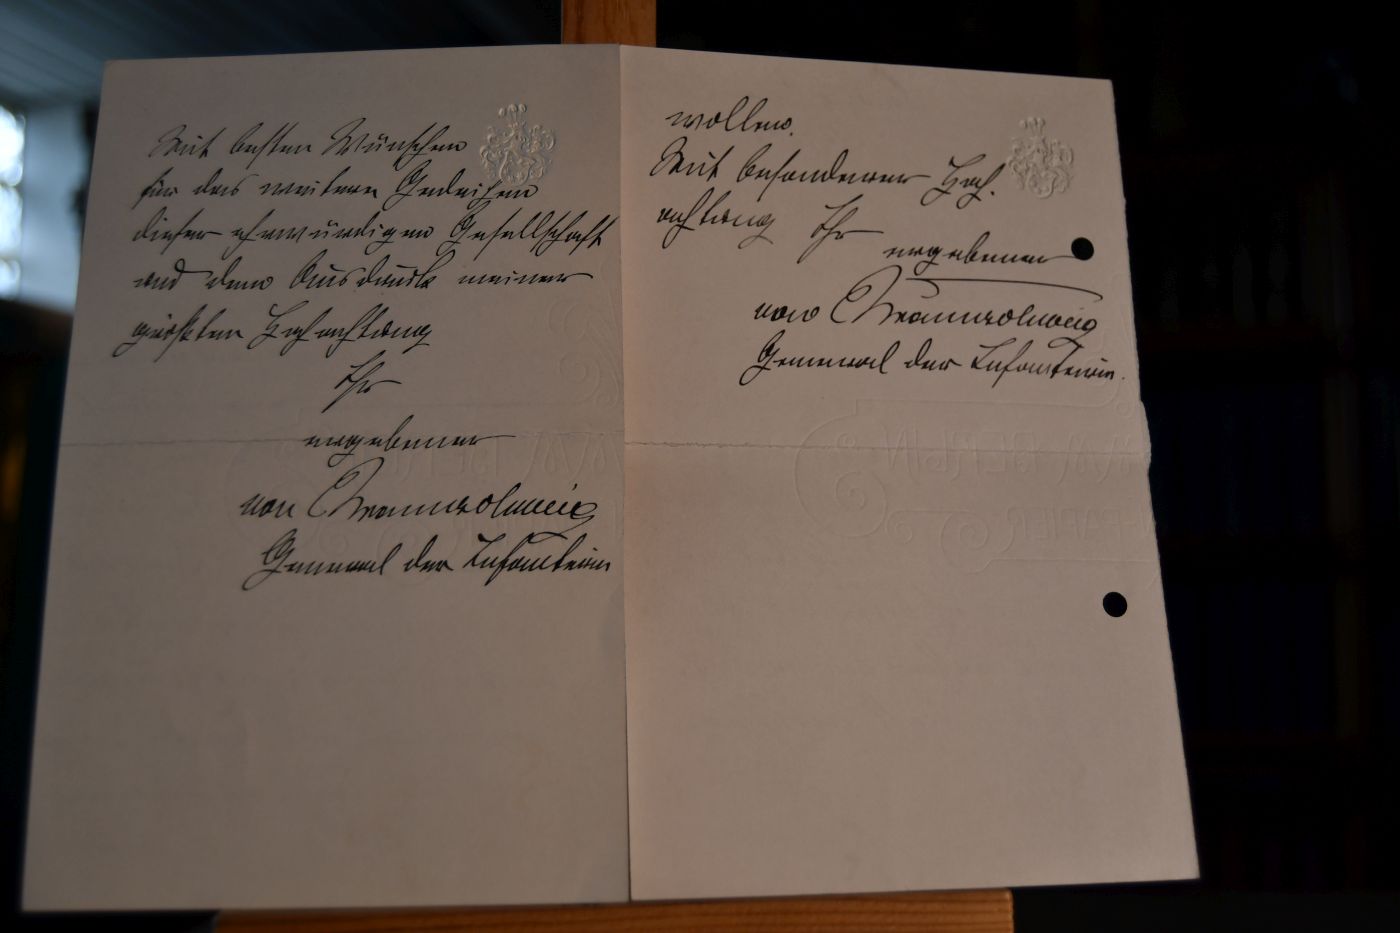 Mit besten Wünschen
für das weitere Gedeihen
dieser ehrwürdigen Gesellschaft
und dem Ausdruck meiner
größten Hochachtung
Ihr
ergebener
von
General der Infanterie
wollen.
Mit besonderer Hoch-
achtung Ihr
ergebener
von
General der Infanterie.
BERLIN